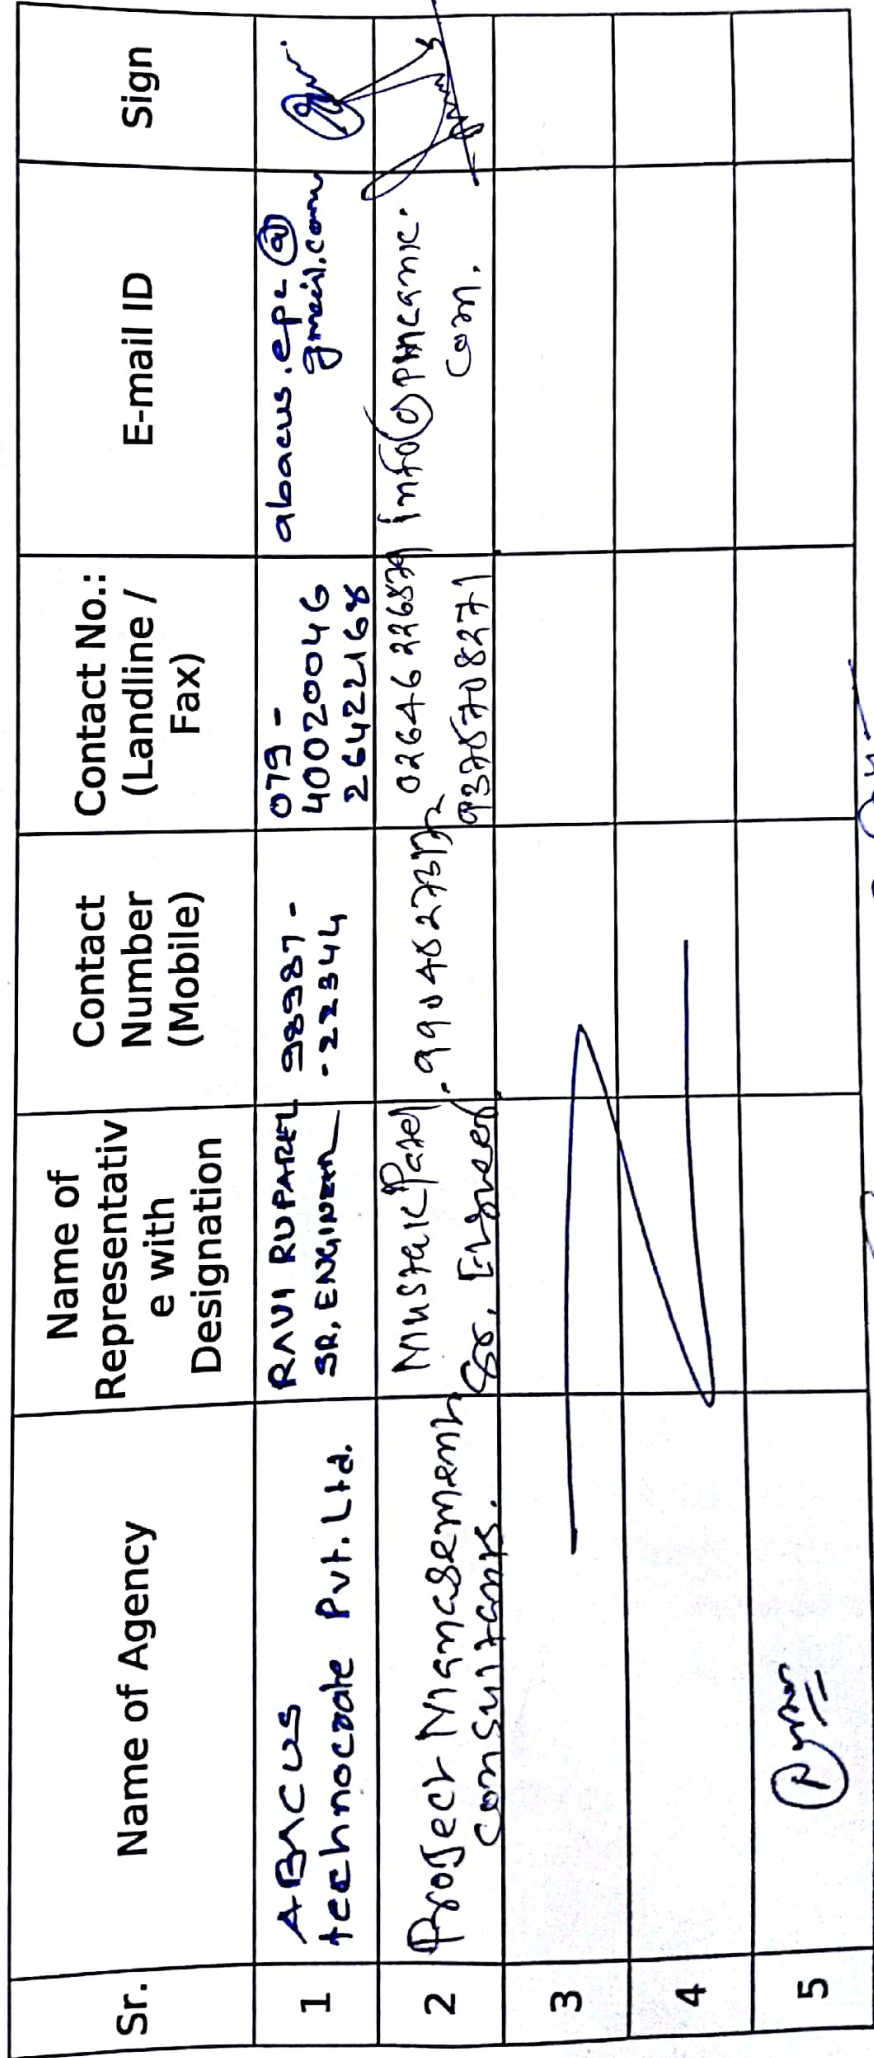 Sr.
Name of Agency
Name of
Representativ
e with
Designation
Contact
Number
(Mobile)
Contact No.:
(Landline /
Fax)
E-mail ID
Sign
1
ABACUS
technocrate Pvt. Ltd.
RAVI RUPAREL
SR. ENGINEER
98987 -
- 22344
079 -
40020046
26422168
abacus.epc@
gmail.com
2
Project Management
Consultants.
Mustak Patel
Sr. Engineer
02646 226879
9375708271
com.
3
4
5